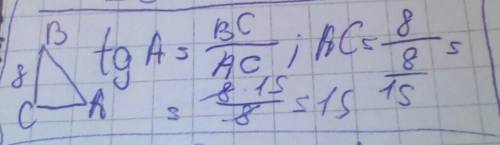 B
8
C A
tg A = BC/AC ; AC = 8/(8/15) =
= 8·15/8 = 15